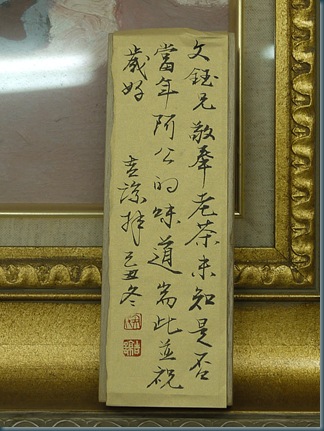 文鈺兄敬奉老茶未知是否
當年阿公的味道耑此並祝
歲好
拜己丑冬